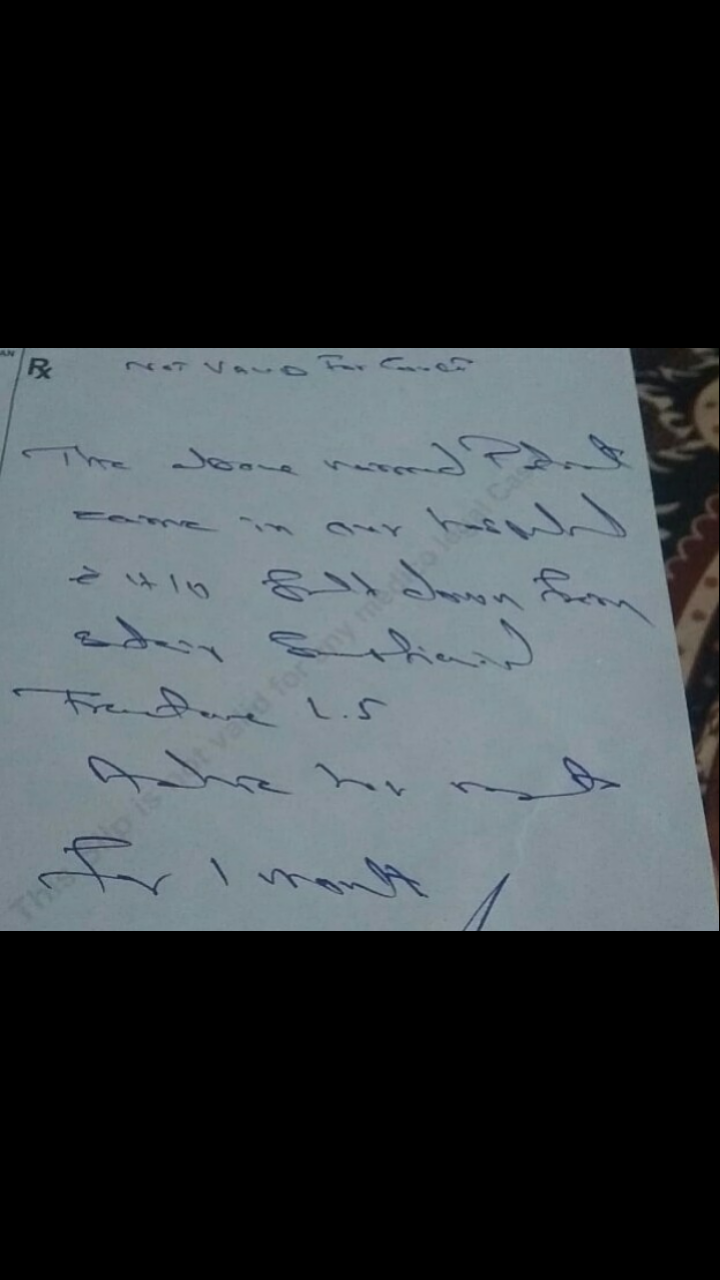 AN
Rx Not Valid For Court
The above named Patient
came in our hospital
c̄ H/o fall down from
stair Sustained
Fracture L.5
Advice her rest
For 1 month
This slip is not valid for any medico legal Cas